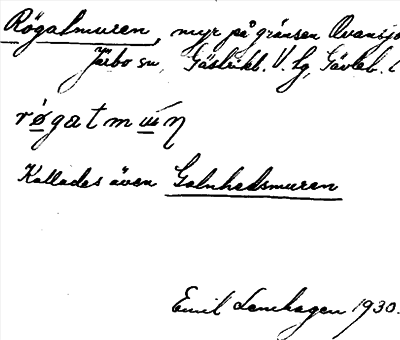 Rögatmuren, myr på gränsen Ovansjö
Järbo sn, Gästrikl. V. lg, Gävleb. l
røgatmuʹn̥
Kallades även Galnhedsmuren
Emil Lenhagen 1930.